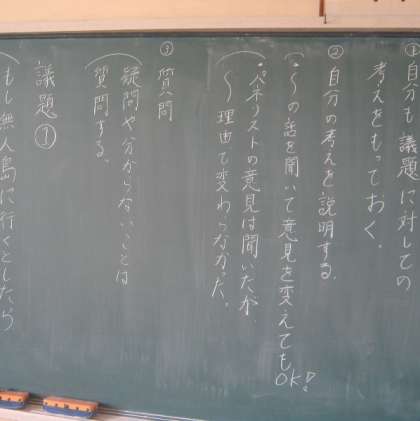 ①自分も議題に対しての
考えをもっておく。
②自分の考えを説明する。
・〜の話を聞いて意見を変えてもOK!
・パネリストの意見は聞いたが、
〜理由で変わらなかった。
③質問
疑問や分からないことは
質問する。
議題①
もし無人島に行くとしたら